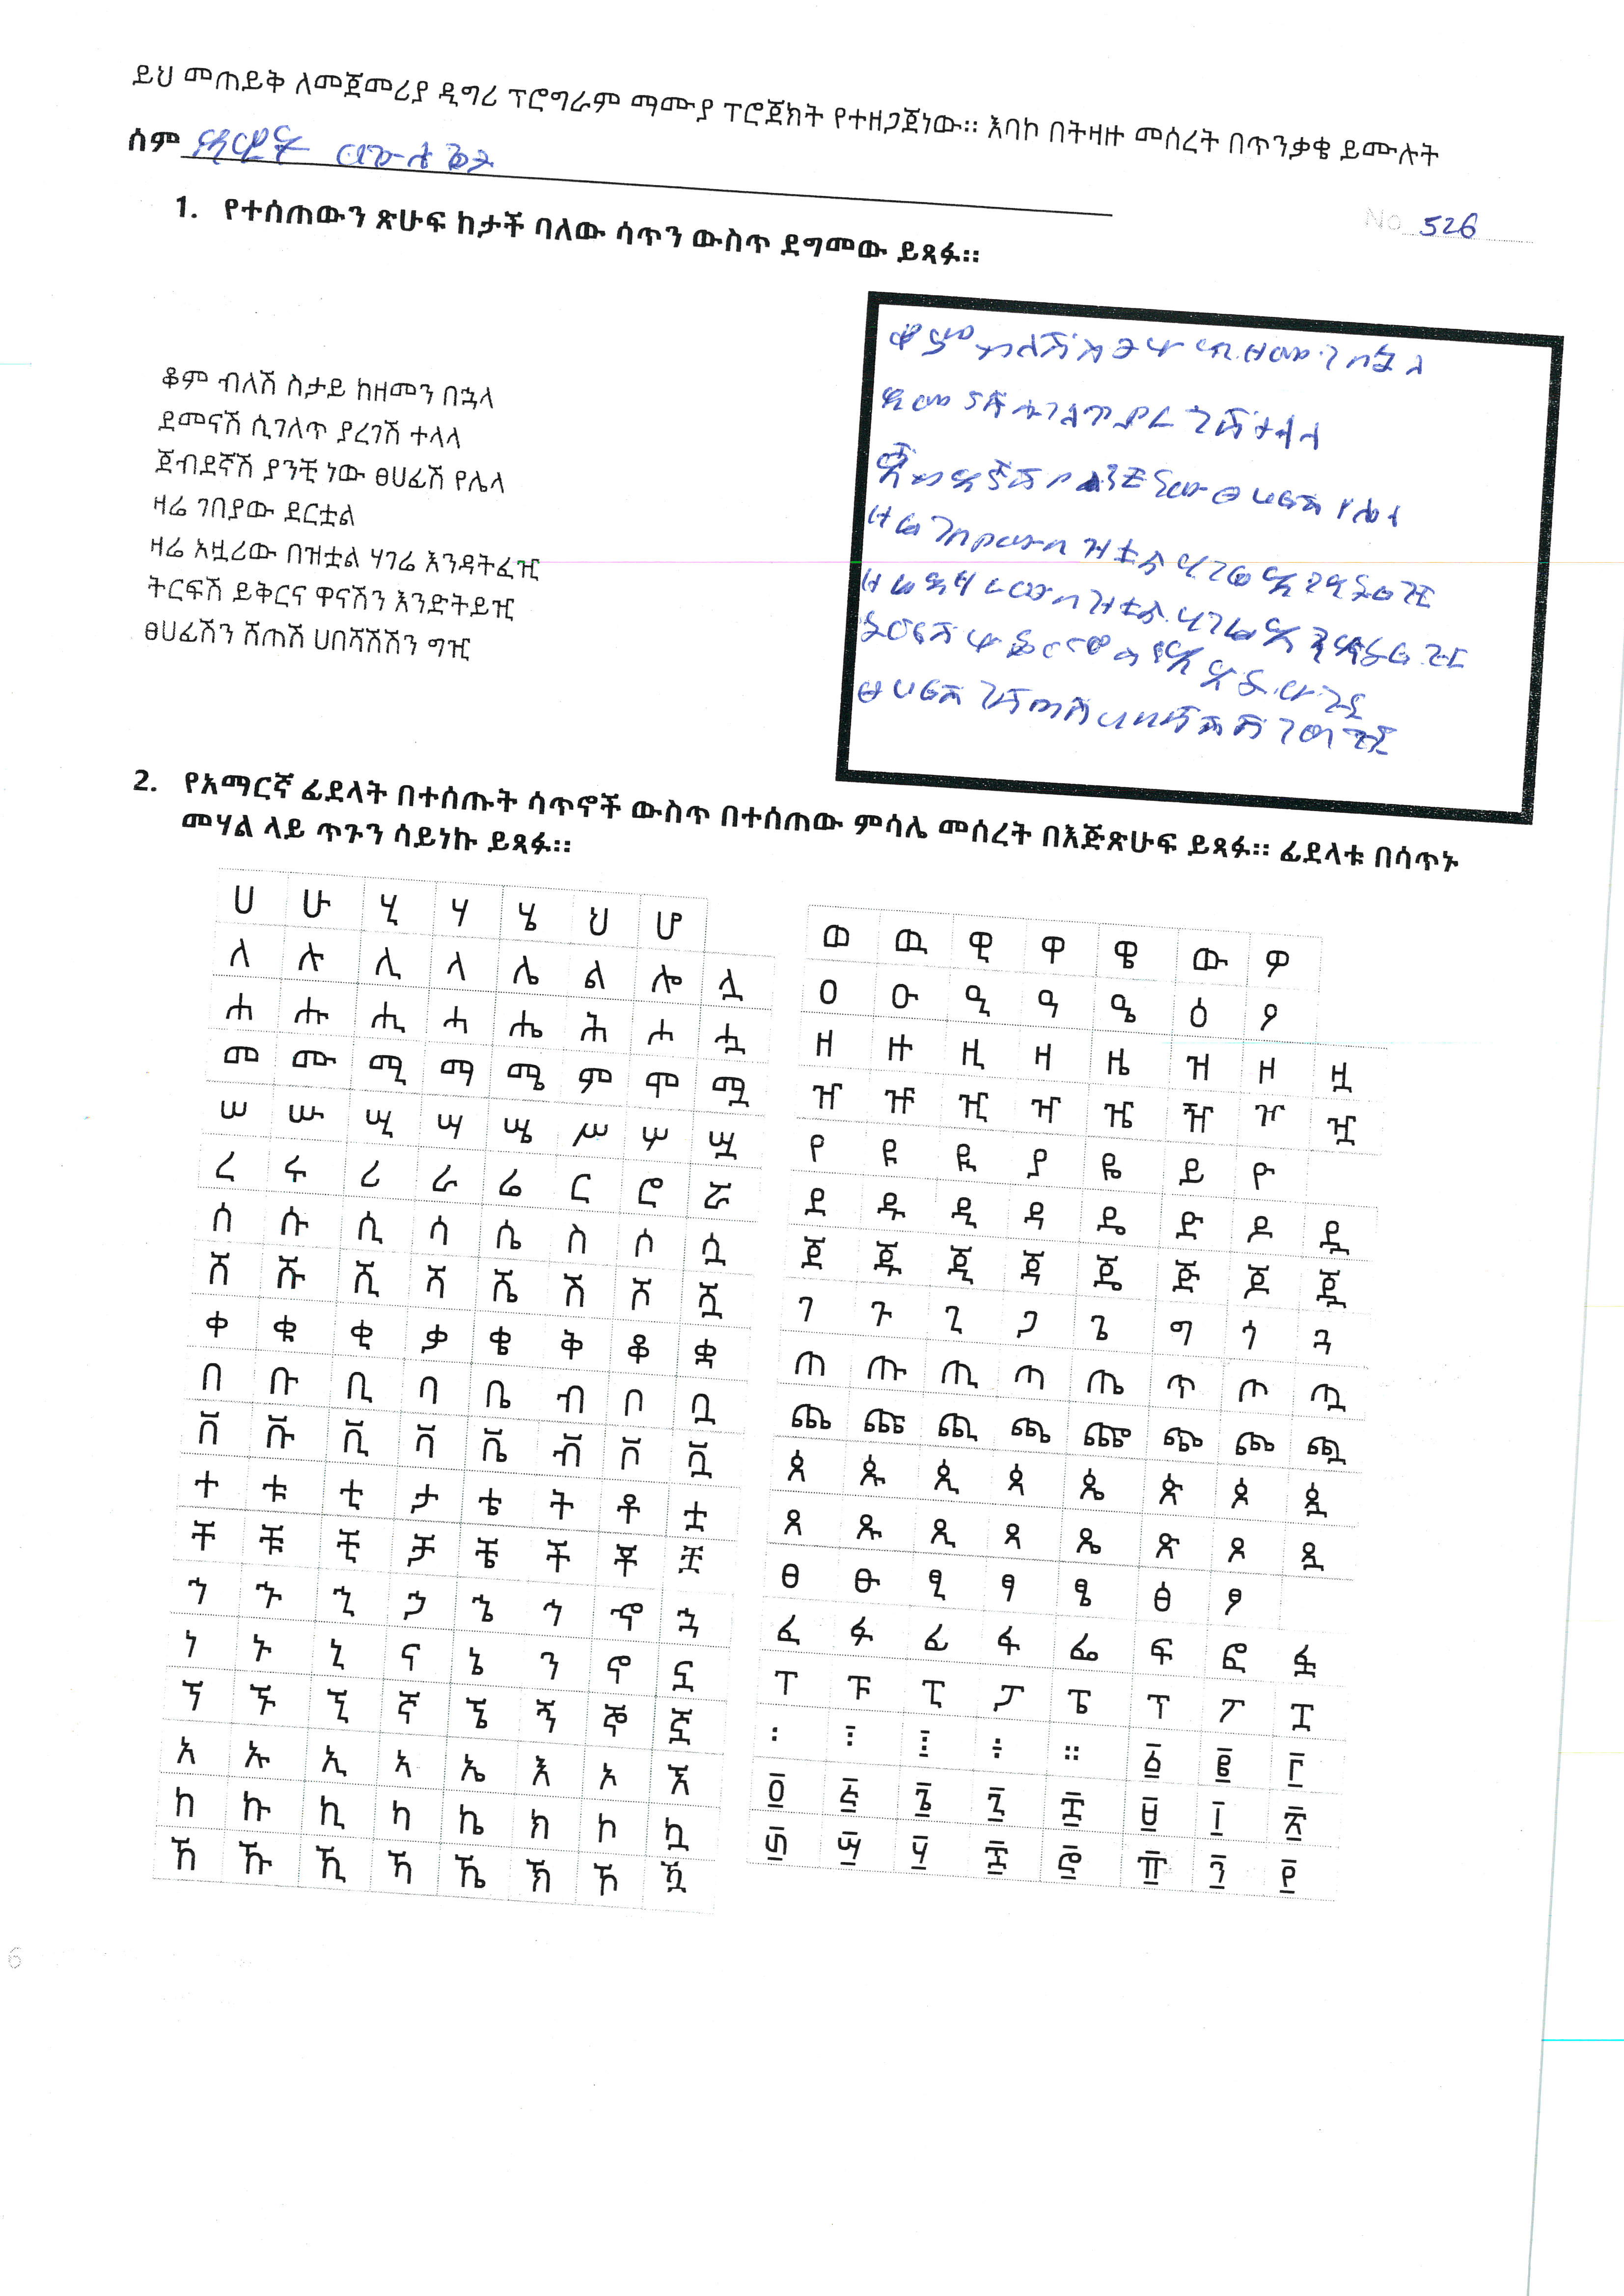 ይህ መጠይቅ ለመጀመሪያ ዲግሪ ፕሮግራም ማሙያ ፕሮጀክት የተዘጋጀነው። እባኮ በትዛዙ መሰረት በጥንቃቄ ይሙሉት
ስም
No 526
1. የተሰጠውን ጽሁፍ ከታች ባለው ሳጥን ውስጥ ደግመው ይጻፉ።
ቆም ብለሽ ስታይ ከዘመን በኋላ
ደመናሽ ሲገለጥ ያረገሽ ተላላ
ጀብደኛሽ ያንቺ ነው ፀሀፊሽ የሌላ
ዛሬ ገበያው ደርቷል
ዛሬ አዟሪው በዝቷል ሃገሬ እንዳትፈዢ
ትርፍሽ ይቅርና ዋናሽን እንድትይዢ
ፀሀፊሽን ሸጠሽ ሀበሻሽሽን ግዢ
2. የአማርኛ ፊደላት በተሰጡት ሳጥኖች ውስጥ በተሰጠው ምሳሌ መሰረት በእጅጽሁፍ ይጻፉ። ፊደላቱ በሳጥኑ
መሃል ላይ ጥጉን ሳይነኩ ይጻፉ።
ሀ ሁ ሂ ሃ ሄ ህ ሆ
ለ ሉ ሊ ላ ሌ ል ሎ ሏ
ሐ ሑ ሒ ሓ ሔ ሕ ሖ ሗ
መ ሙ ሚ ማ ሜ ም ሞ ሟ
ሠ ሡ ሢ ሣ ሤ ሥ ሦ ሧ
ረ ሩ ሪ ራ ሬ ር ሮ ሯ
ሰ ሱ ሲ ሳ ሴ ስ ሶ ሷ
ሸ ሹ ሺ ሻ ሼ ሽ ሾ ሿ
ቀ ቁ ቂ ቃ ቄ ቅ ቆ ቋ
በ ቡ ቢ ባ ቤ ብ ቦ ቧ
ቨ ቩ ቪ ቫ ቬ ቭ ቮ ቯ
ተ ቱ ቲ ታ ቴ ት ቶ ቷ
ቸ ቹ ቺ ቻ ቼ ች ቾ ቿ
ኀ ኁ ኂ ኃ ኄ ኅ ኆ ኋ
ነ ኑ ኒ ና ኔ ን ኖ ኗ
ኘ ኙ ኚ ኛ ኜ ኝ ኞ ኟ
አ ኡ ኢ ኣ ኤ እ ኦ ኧ
ከ ኩ ኪ ካ ኬ ክ ኮ ኳ
ኸ ኹ ኺ ኻ ኼ ኽ ኾ ዃ
ወ ዉ ዊ ዋ ዌ ው ዎ
ዐ ዑ ዒ ዓ ዔ ዕ ዖ
ዘ ዙ ዚ ዛ ዜ ዝ ዞ ዟ
ዠ ዡ ዢ ዣ ዤ ዥ ዦ ዧ
የ ዩ ዪ ያ ዬ ይ ዮ
ደ ዱ ዲ ዳ ዴ ድ ዶ ዷ
ጀ ጁ ጂ ጃ ጄ ጅ ጆ ጇ
ገ ጉ ጊ ጋ ጌ ግ ጎ ጓ
ጠ ጡ ጢ ጣ ጤ ጥ ጦ ጧ
ጨ ጩ ጪ ጫ ጬ ጭ ጮ ጯ
ጰ ጱ ጲ ጳ ጴ ጵ ጶ ጷ
ጸ ጹ ጺ ጻ ጼ ጽ ጾ ጿ
ፀ ፁ ፂ ፃ ፄ ፅ ፆ
ፈ ፉ ፊ ፋ ፌ ፍ ፎ ፏ
ፐ ፑ ፒ ፓ ፔ ፕ ፖ ፗ
፡ ፣ ፤ ፥ ። ፩ ፪ ፫
፬ ፭ ፮ ፯ ፰ ፱ ፲ ፳
፴ ፵ ፶ ፷ ፸ ፹ ፺ ፻
6